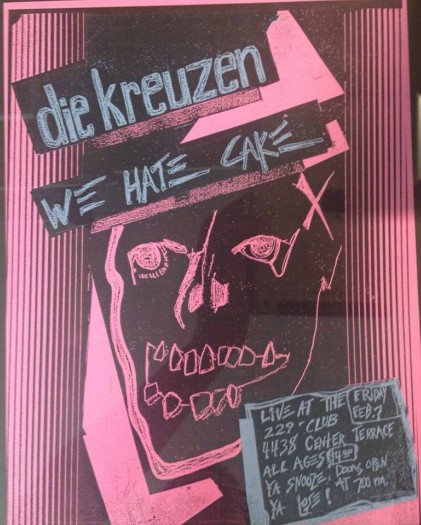 die kreuzen
WE HATE CAKE
LIVE AT THE
229-CLUB
4438 CENTER TERRACE
ALL AGES $4.50
YA SNOOZE,
YA LOSE!
FRIDAY
FEB. 7
DOORS OPEN
AT 7:00 PM.